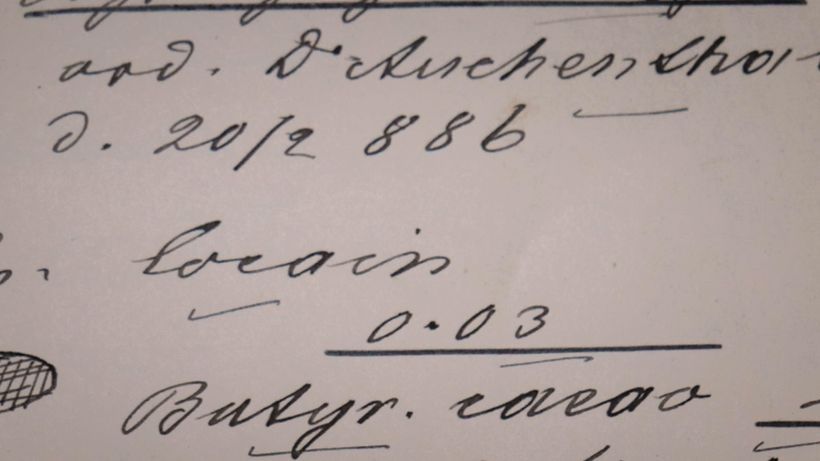 ord. Dr Aschenthal
d. 20/2 886
Cocain
0.03
Butyr. cacao